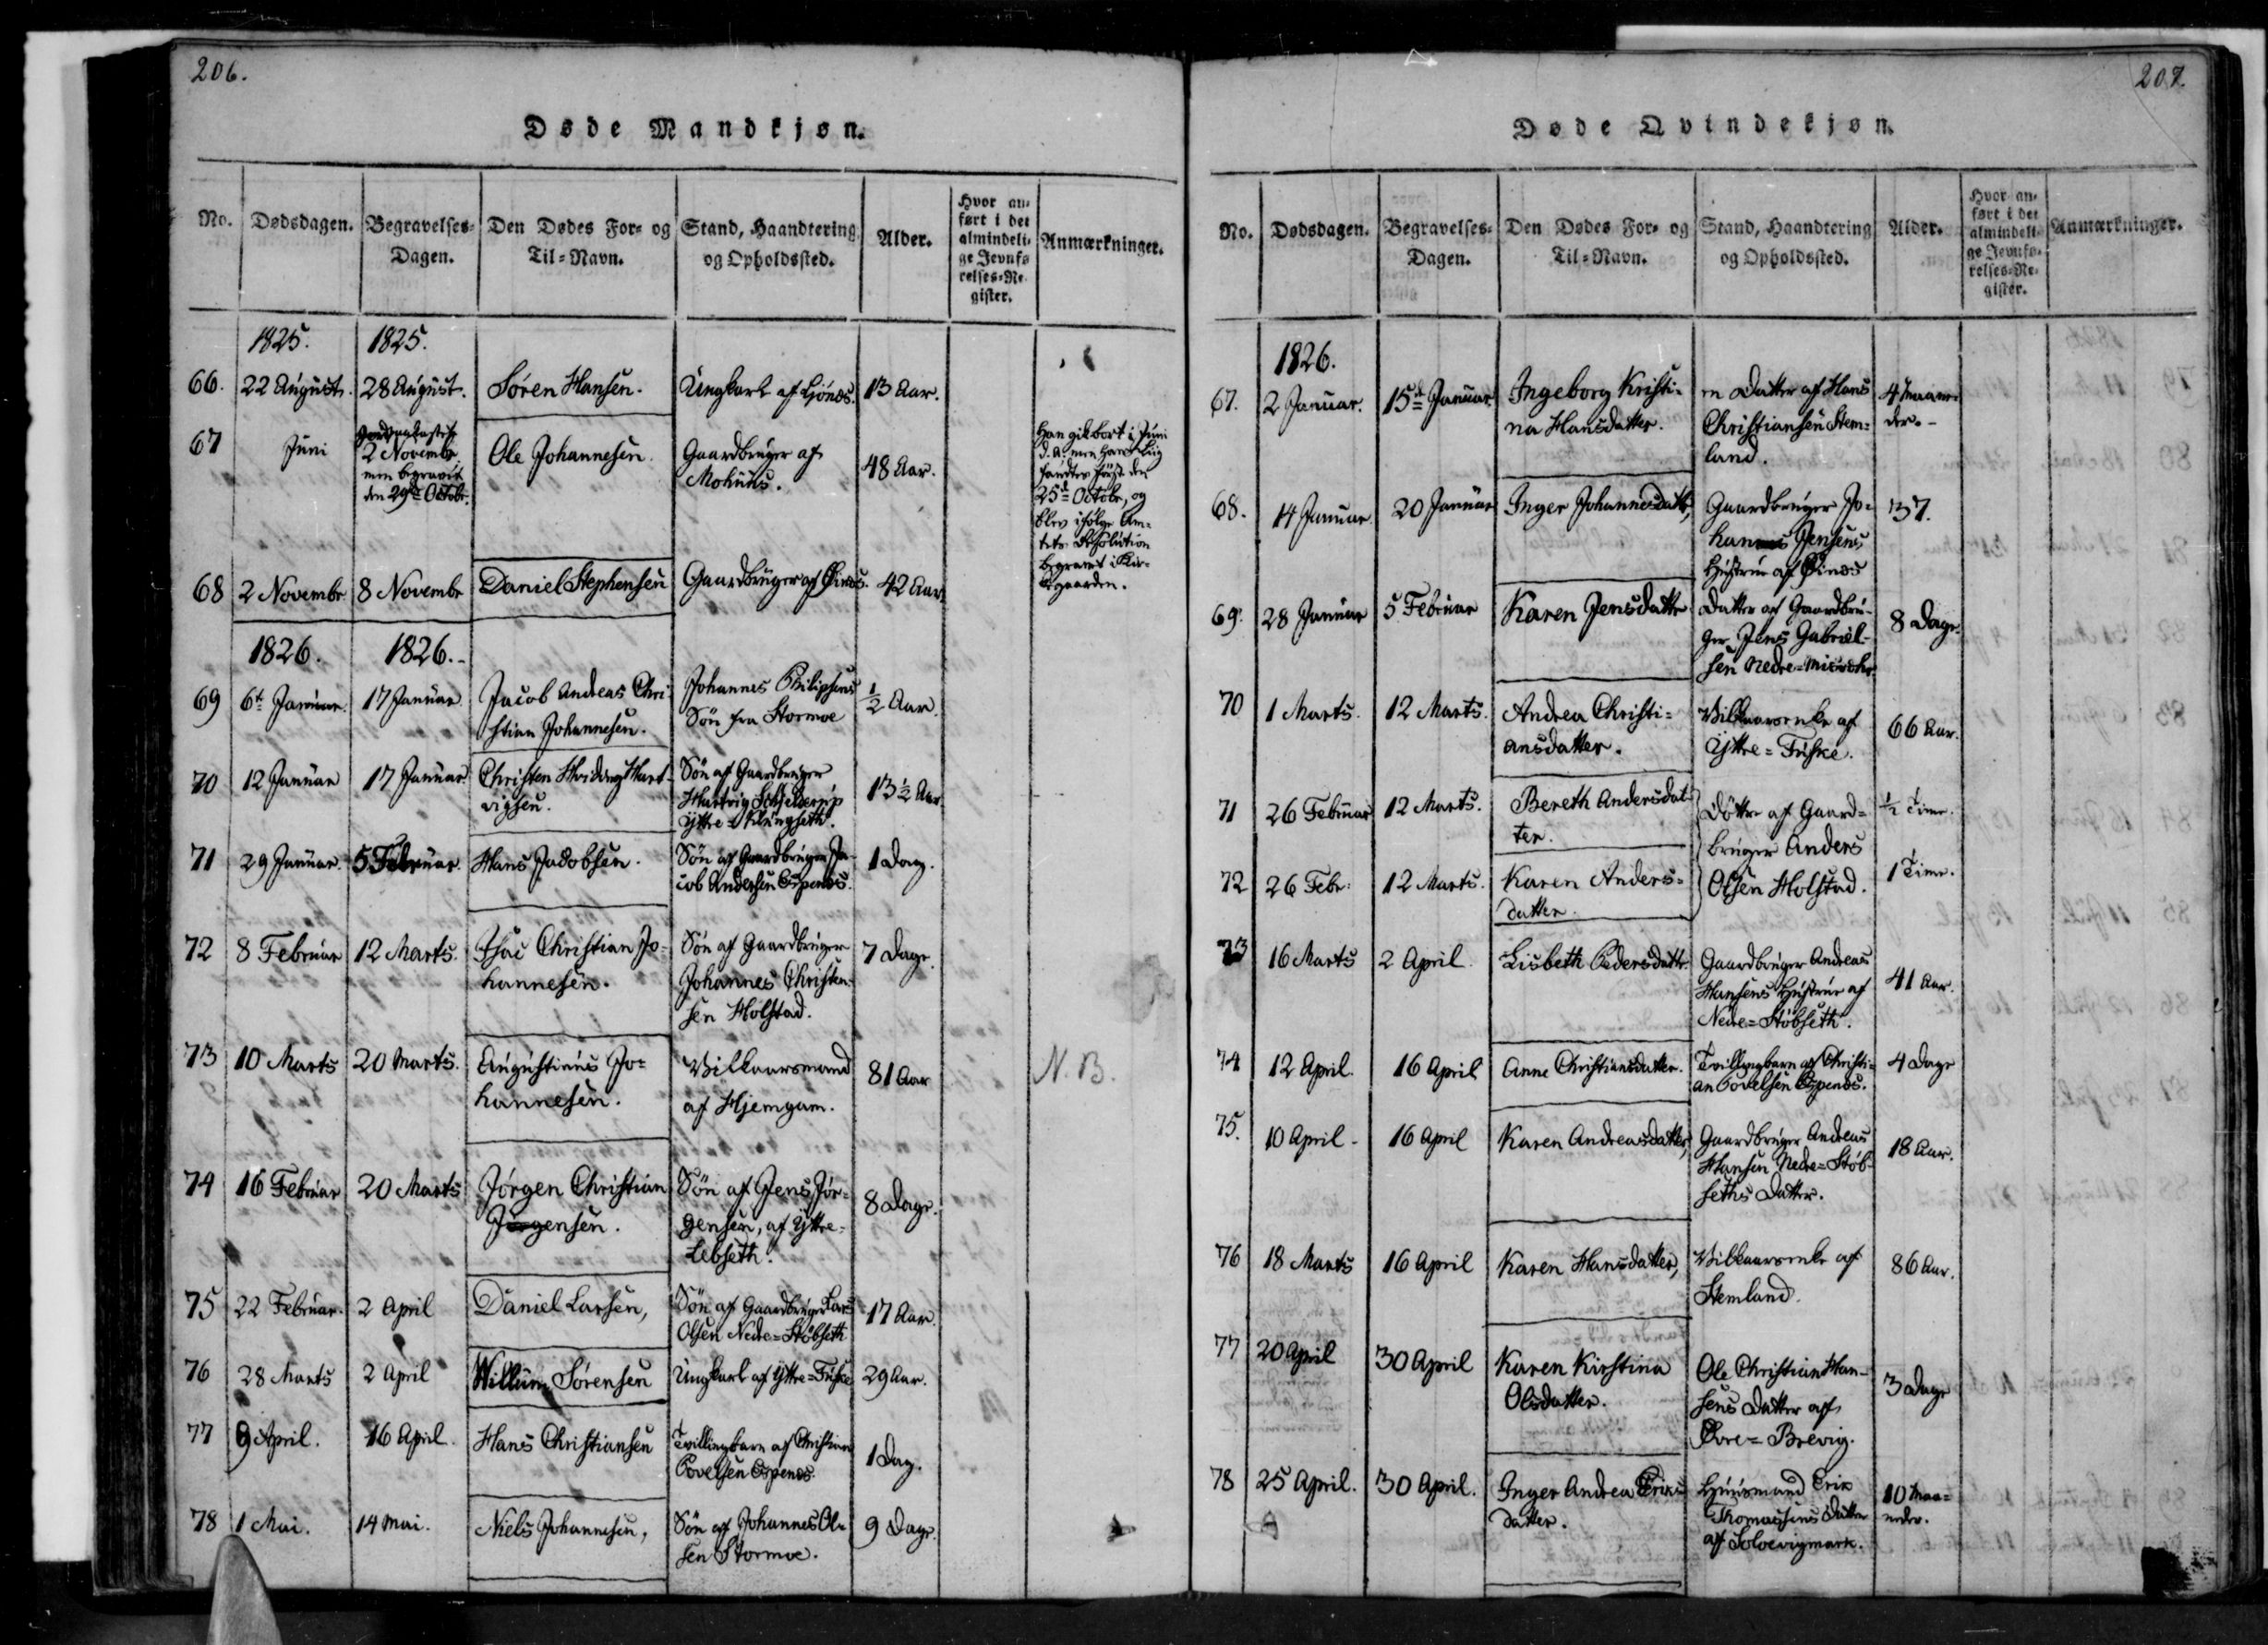 206.
Døde Mandkjøn.
No. Dødsdagen. Begravelses-Dagen. Den Dødes For- og Til-Navn. Stand, Haandtering og Opholdssted. Alder. Hvor anført i det almindelige Jevnførelses-Register. Anmærkninger.
1825. 1825.
66. 22 August. 28 August. Søren Hansen. Ungkarl af Ljónæs. 13 Aar.
67 Juni Jordpaakastet
2 Novembr
men begravet
den 29de Octobr.
Ole Johannesen. Gaardbruger af
Mohuus.
48 Aar.
Han gik bort i Juni
d. A. men hans Liig
fandtes først den
25d Octobr, og
blev ifølge Am-
tets Resolution
begravet i Kir-
kegaarden.
68 2 Novembr 8 Novembr Daniel Stephensen Gaardbruger af Øinæs. 42 Aar
1826. 1826.
69 6t Januar. 17 Januar Jacob Andreas Chri-
stian Johannesen.
Johannes Philipsens
Søn fra Stormoe
1/2 Aar.
70 12 Januar 17 Januar Christen Hvidung Hart-
vigsen.
Søn af Gaardbruger
Hartvig Schjelderup
Yttre=Klungseth.
13 1/2 Aar
71 29 Januar. 5 Februar. Hans Jacobsen. Søn af Gaardbruger Ja-
cob Andersen Espenæs.
1 Dag.
72 8 Februar 12 Marts. Isac Christian Jo-
hannesen.
Søn af Gaardbruger
Johannes Christen-
sen Holstad.
7 Dage.
73 10 Marts 20 Marts. Augustinus Jo-
hannesen.
Vilkaarsmand
af Hjemgam.
81 Aar
N.B.
74 16 Februar 20 Marts Jörgen Christian
Jörgensen.
Søn af Jens Jör-
gensen, af Yttre-
Lebseth.
8 Dage.
75 22 Februar. 2 April Daniel Larsen, Søn af Gaardbruger Lars
Olsen Nedre=Støbseth
17 Aar.
76 28 Marts 2 April Willum Sörensen Ungkarl af Yttre=Fiske 29 Aar.
77 9 April. 16 April. Hans Christiansen Tvillingbarn af Christian
Povelsen Espenæs.
1 Dag.
78 1 Mai. 14 Mai. Niels Johannesen, Søn af Johannes Ol-
sen Stormoe.
9 Dage.
207.
Døde Qvindekjøn.
No. Dødsdagen. Begravelses-Dagen. Den Dødes For- og Til-Navn. Stand, Haandtering og Opholdssted. Alder. Hvor anført i det almindelige Jevnførelses-Register. Anmærkninger.
1826.
67. 2 Januar. 15de Januar Ingeborg Kristi-
na Hansdatter.
en Datter af Hans
Christiansen Stem-
land.
4 Maane-
der.
68. 14 Januar. 20 Januar Inger Johannesdatter, Gaardbruger Jo-
hannes Jensens
Hustrue af Øinæs
37.
69. 28 Januar 5 Februar Karen Jensdatter Datter af Gaardbru-
ger Jens Gabriel-
sen Nedre=Misvær
8 Dage.
70 1 Marts. 12 Marts. Andrea Christi-
ansdatter.
Vilkaarsenke af
Yttre=Fiske.
66 Aar.
71 26 Februar 12 Marts. Bereth Andersdat-
ter.
Døttre af Gaard-
bruger Anders
Olsen Holstad.
1/2 Time.
72 26 Febr: 12 Marts. Karen Anders-
datter.
1 Time.
73 16 Marts 2 April. Lisbeth Pedersdatter Gaardbruger Andreas
Hansens Hustrue af
Nedre=Støbseth.
41 Aar.
74 12 April. 16 April Anne Christiansdatter. Tvillingbarn af Christi-
an Povelsen Espenæs.
4 Dage
75. 10 April 16 April Karen Andreasdatter, Gaardbruger Andreas
Hansen Nedre=Støb-
seths Datter.
18 Aar.
76 18 Marts 16 April Karen Hansdatter, Vilkaarsenke af
Stemland.
86 Aar.
77 20 April 30 April Karen Kirstina
Olsdatter.
Ole Christian Han-
sens Datter af
Øvre=Brevig.
3 Dage
78 25 April. 30 April. Inger Andrea Eriks-
datter.
Huusmand Erik
Thomassens Datter
af Soloevigmark.
10 Maa-
neder.